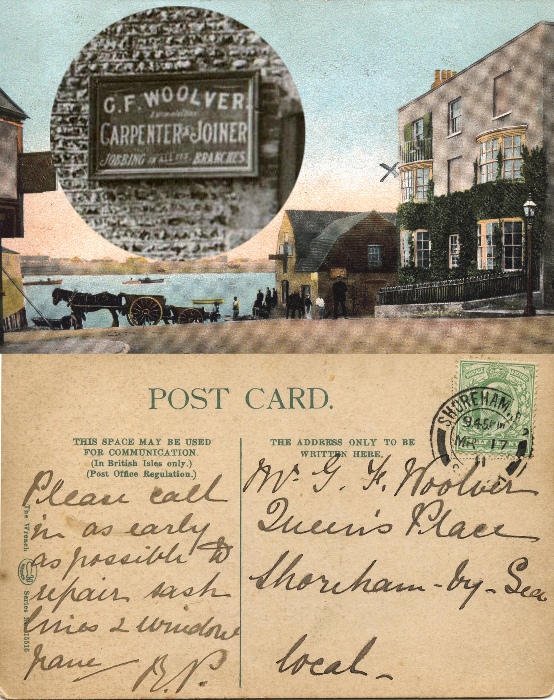 G.F. WOOLVER.
CARPENTER & JOINER
JOBBING IN ALL ITS BRANCHES.
POST CARD.
THIS SPACE MAY BE USED
FOR COMMUNICATION.
(In British Isles only.)
(Post Office Regulation.)
THE ADDRESS ONLY TO BE
WRITTEN HERE.
SHOREHAM
9.45 PM
MR 17
11
Please call
in as early
as possible to
repair sash
lines & window
pane
B.P.
Mr G. F. Woolver
Queen's Place
Shoreham-by-Sea
local
The Wrench Series